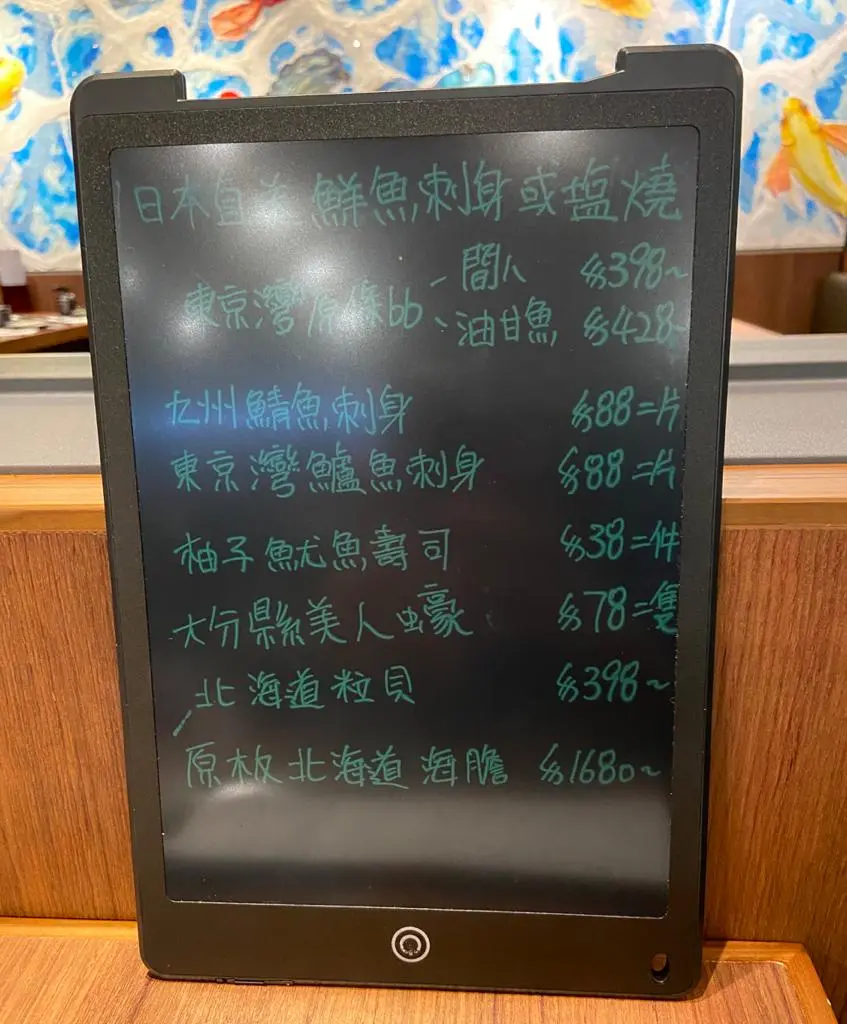 日本自 鮮魚刺身或塩燒
東京灣原條bb
、間八 $398~
、油甘魚 $428~
九州鯖魚刺身 $88=片
東京灣鱸魚刺身 $88=片
柚子魷魚壽司 $38=件
大分縣美人蠔 $78=隻
北海道粒貝 $398~
原板北海道海膽 $1680~